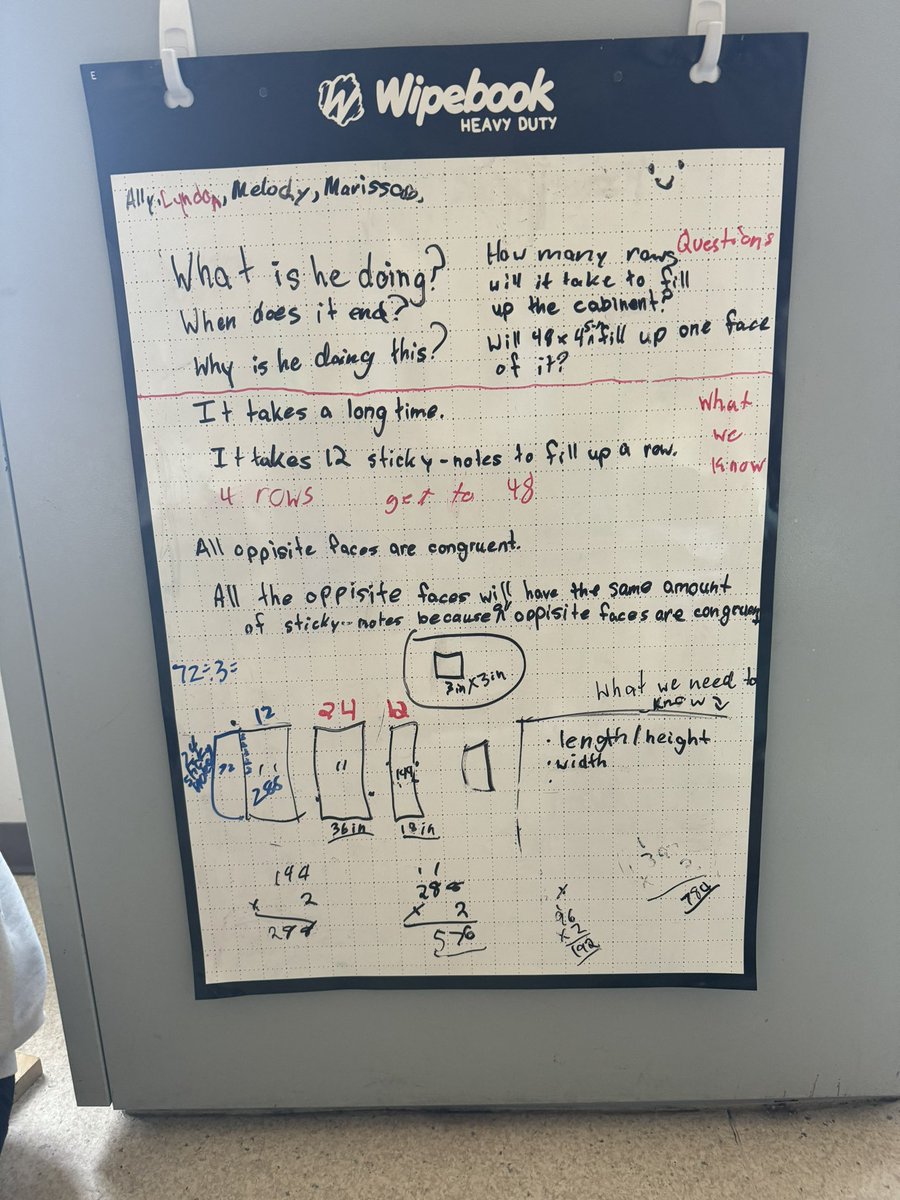 E
Wipebook
HEAVY DUTY
Ally, Lyndon, Melody, Marissa
Questions
What is he doing?
When does it end?
Why is he doing this?
How many rows
will it take to fill
up the cabinent?
Will 48 x 4 fill up one face
of it?
It takes a long time.
It takes 12 sticky-notes to fill up a row.
4 rows get to 48
What
we
know
All oppisite faces are congruent.
All the oppisite faces will have the same amount
of sticky-notes because oppisite faces are congruent
3in x 3in
72÷3=
What we need to
know
12
24
12
72
11
36in
144
18in
· length/height
· width
x 2
x 2
576
96
x2
192
784